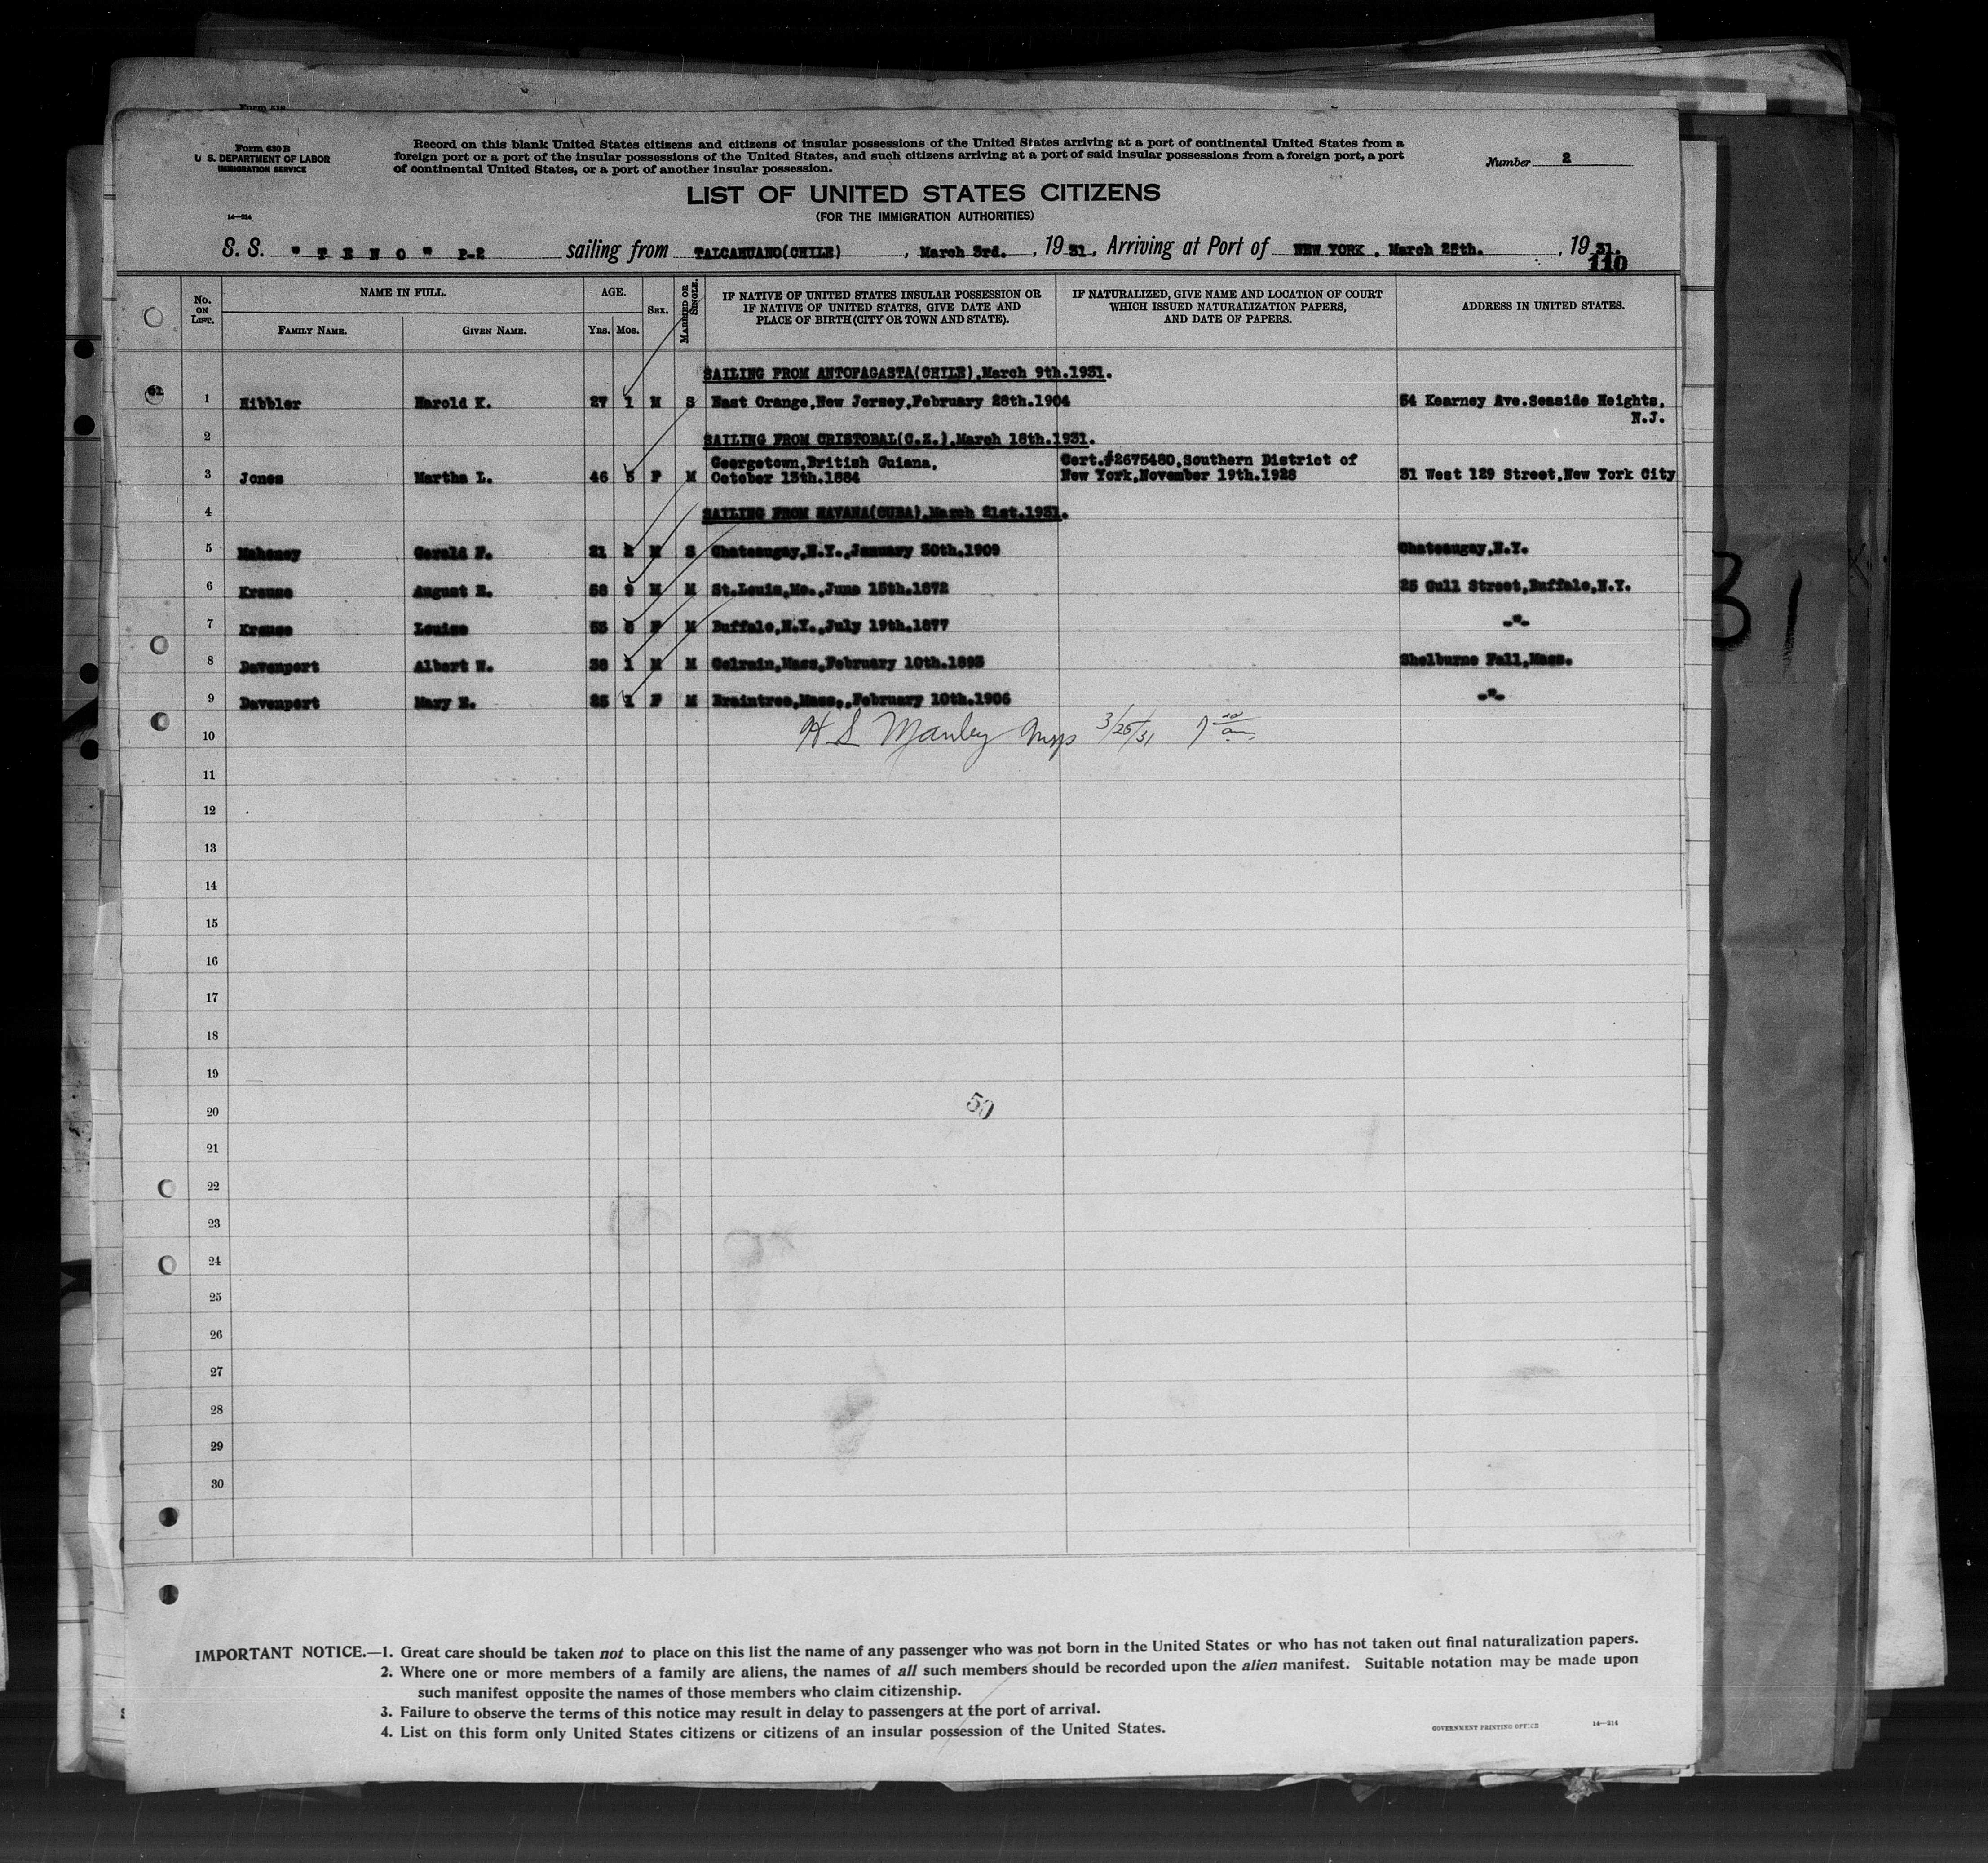 Form 630 B
U. S. DEPARTMENT OF LABOR
IMMIGRATION SERVICE
Record on this blank United States citizens and citizens of insular possessions of the United States arriving at a port of continental United States from a
foreign port or a port of the insular possessions of the United States, and such citizens arriving at a port of said insular possessions from a foreign port, a port
of continental United States, or a port of another insular possession.
Number 2
LIST OF UNITED STATES CITIZENS
(FOR THE IMMIGRATION AUTHORITIES)
14—214
S. S. " T E N O " P-2 sailing from TALCAHUANO(CHILE) , March 3rd. , 19 31, Arriving at Port of NEW YORK , March 25th. , 19 31.
110
No. ON LIST. NAME IN FULL. AGE. SEX. MARRIED OR SINGLE. IF NATIVE OF UNITED STATES INSULAR POSSESSION OR IF NATIVE OF UNITED STATES, GIVE DATE AND PLACE OF BIRTH (CITY OR TOWN AND STATE). IF NATURALIZED, GIVE NAME AND LOCATION OF COURT WHICH ISSUED NATURALIZATION PAPERS, AND DATE OF PAPERS. ADDRESS IN UNITED STATES.
FAMILY NAME. GIVEN NAME. YRS. MOS.
SAILING FROM ANTOFAGASTA(CHILE),March 9th.1931.
1 Hibbler Harold K. 27 1 M S East Orange,New Jersey,February 28th.1904 54 Kearney Ave.Seaside Heights,
N.J.
2 SAILING FROM CRISTOBAL(C.Z.),March 18th.1931.
Georgetown,British Guiana, Cert.#2675480,Southern District of
3 Jones Martha L. 46 5 F M October 13th.1884 New York,November 19th.1928 31 West 129 Street,New York City
4 SAILING FROM HAVANA(CUBA),March 21st.1931.
5 Mahoney Gerald F. 21 2 M S Chateaugay,N.Y.,January 30th.1909 Chateaugay,N.Y.
6 Krause August R. 58 9 M M St.Louis,Mo.,June 15th.1872 25 Gull Street,Buffalo,N.Y.
7 Krause Louise 53 8 F M Buffalo,N.Y.,July 19th.1877 -"-
8 Davenport Albert W. 38 1 M M Colrain,Mass,February 10th.1893 Shelburne Fall,Mass.
9 Davenport Mary E. 25 1 F M Braintree,Mass.,February 10th.1906 -"-
10 H S Manley Insp 3/25/31
11
12
13
14
15
16
17
18
19
20
50
21
22
23
24
25
26
27
28
29
30
IMPORTANT NOTICE.—1. Great care should be taken not to place on this list the name of any passenger who was not born in the United States or who has not taken out final naturalization papers.
2. Where one or more members of a family are aliens, the names of all such members should be recorded upon the alien manifest. Suitable notation may be made upon
such manifest opposite the names of those members who claim citizenship.
3. Failure to observe the terms of this notice may result in delay to passengers at the port of arrival.
4. List on this form only United States citizens or citizens of an insular possession of the United States.
GOVERNMENT PRINTING OFFICE 14—214